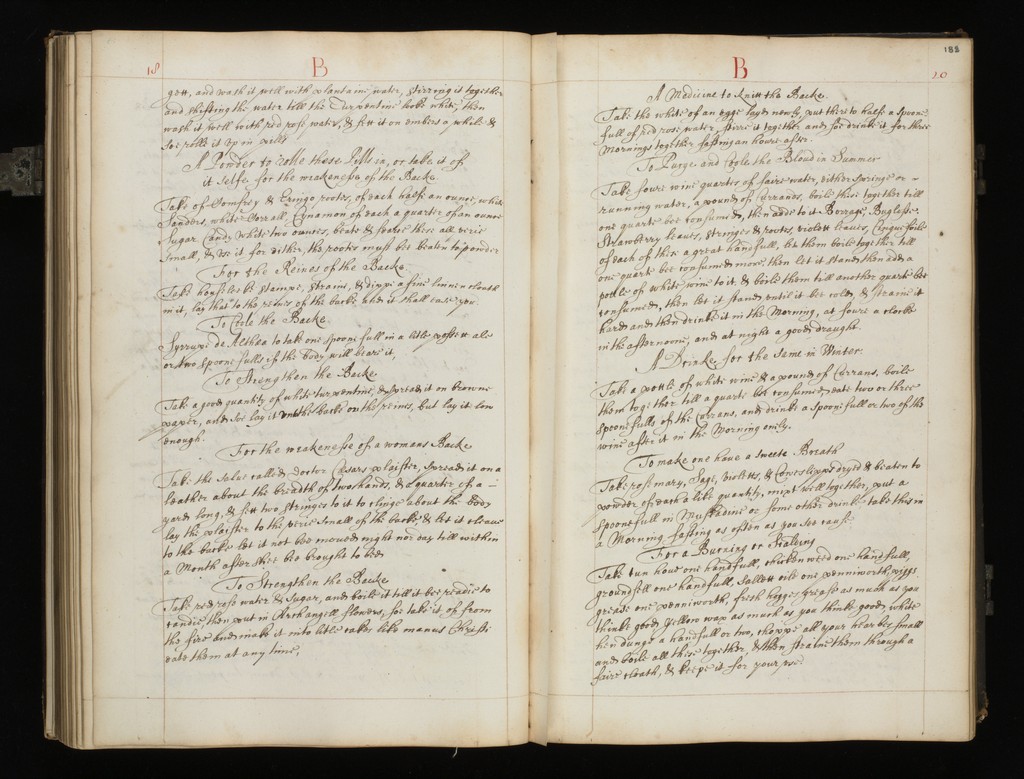 18
B
gett, and wash it well with plantaine water, stirring it together
and shifting the water till the Turpentine looke white, then
wash it well with red rose water, & sett it on embers a while &
soe rolle it up in pills
A Powder to rolle these Pills in, or take it of
it selfe for the weakenesse of the Backe
Take of Comfrey & Eringo rootes, of each halfe an ounce, white
Sanders, white Corrall, Cynamon of each a quarter of an ounce
Sugar Candy white two ounces, beate & searse these all verie
small, & use it for either, the rootes must bee beaten to powder
For the Reines of the Backe
Take houseleeke stampe, straine, & dippe a fine linnen cloath
in it, lay that to the reines of the backe and it shall ease you
To Coole the Backe
Syrrupe de Althea to take one spoone full in a litle possett ale
or two spoone fulls if the body will beare it,
To Strengthen the Backe
Take a good quantity of white turpentine, & spread it on browne
paper, and soe lay it to the backe on the reines, but lay it low
enough.
For the weakenesse of a womans Backe
Take the salve called Doctor Cæsars plaister, spread it on a
leather about the breadth of two hands, & a quarter of a
yard long, & sett two stringes to it to clinge about the body
lay the plaister to the verie small of the backe, & let it cleave
to the backe let it not bee moved night nor day till within
a Month after shee bee brought to bed
To Strengthen the Backe
Take red rose water & sugar, and boile it till it bee readie to
candie then put in Archangell flowers, soe take it of from
the fire and make it into litle cakes like manus Christi
eate them at any time,
188
B
20
A Medicine to knitt the Backe
Take the white of an egge layd newly, put thereto halfe a spoone
full of red rose water, stirre it together and soe drinke it for three
Mornings together fasting an houre after.
To Purge and Coole the Bloud in Summer
Take foure wine quartes of faire water, either springe or
running water, a pound of Currands, boile these together till
one quarte bee consumed, then adde to it Borrage, Buglosse
Strawberry leaves, stringes & rootes, violett leaves, Cinquefoile
of each of these a great handfull, let them boile together till
one quart bee consumed more, then let it stand then adde a
pottle of white wine to it, & boile them till another quart bee
consumed, then let it stand until it bee cold, & straine it
hard and then drinke it in the Morning, at foure a clocke
in the afternoone, and at night a good draught.
A Drinke for the same in Winter
Take a pottle of white wine & a pound of Currans, boile
them together till a quarte bee consumed, eate two or three
spoonefulls of the Currans, and drinke a spoonefull or two of the
wine after it in the Morning onely.
To make one have a sweete Breath
Take rosemary, Sage, violetts, & Cowslipps dryed & beaten to
powder of each a like quantity, mixt well together, put a
spoonefull in Muskadine or some other drinke take this in
a Morning fasting as often as you see cause.
For a Burning or Scalding
Take tun houe one handfull, chickenweed one handfull
groundsell one handfull, Sallett oile one penniworth, piggs
grease one penniworth, fresh hogges grease as much as you
thinke good, Yellow wax as much as you thinke good, white
hen dunge a handfull or two, choppe all your hearbes small
and boile all these together, & then straine them through a
faire cloath, & keepe it for your use